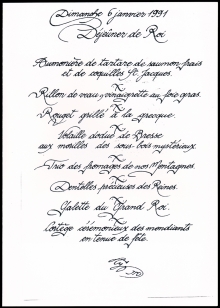 Dimanche 6 janvier 1991
Déjeuner de Roi
Aumonière de tartare de saumon frais
et de coquilles St Jacques.
Rillon de veau, vinaigrette au foie gras.
Rouget grillé à la grecque.
Volaille dodue de Bresse
aux morilles des sous-bois mystérieux.
Trio des fromages de nos Montagnes.
Dentelles précieuses des Reines.
Galette du Grand Roi.
Cortège cérémonieux des mendiants
en tenue de fête.